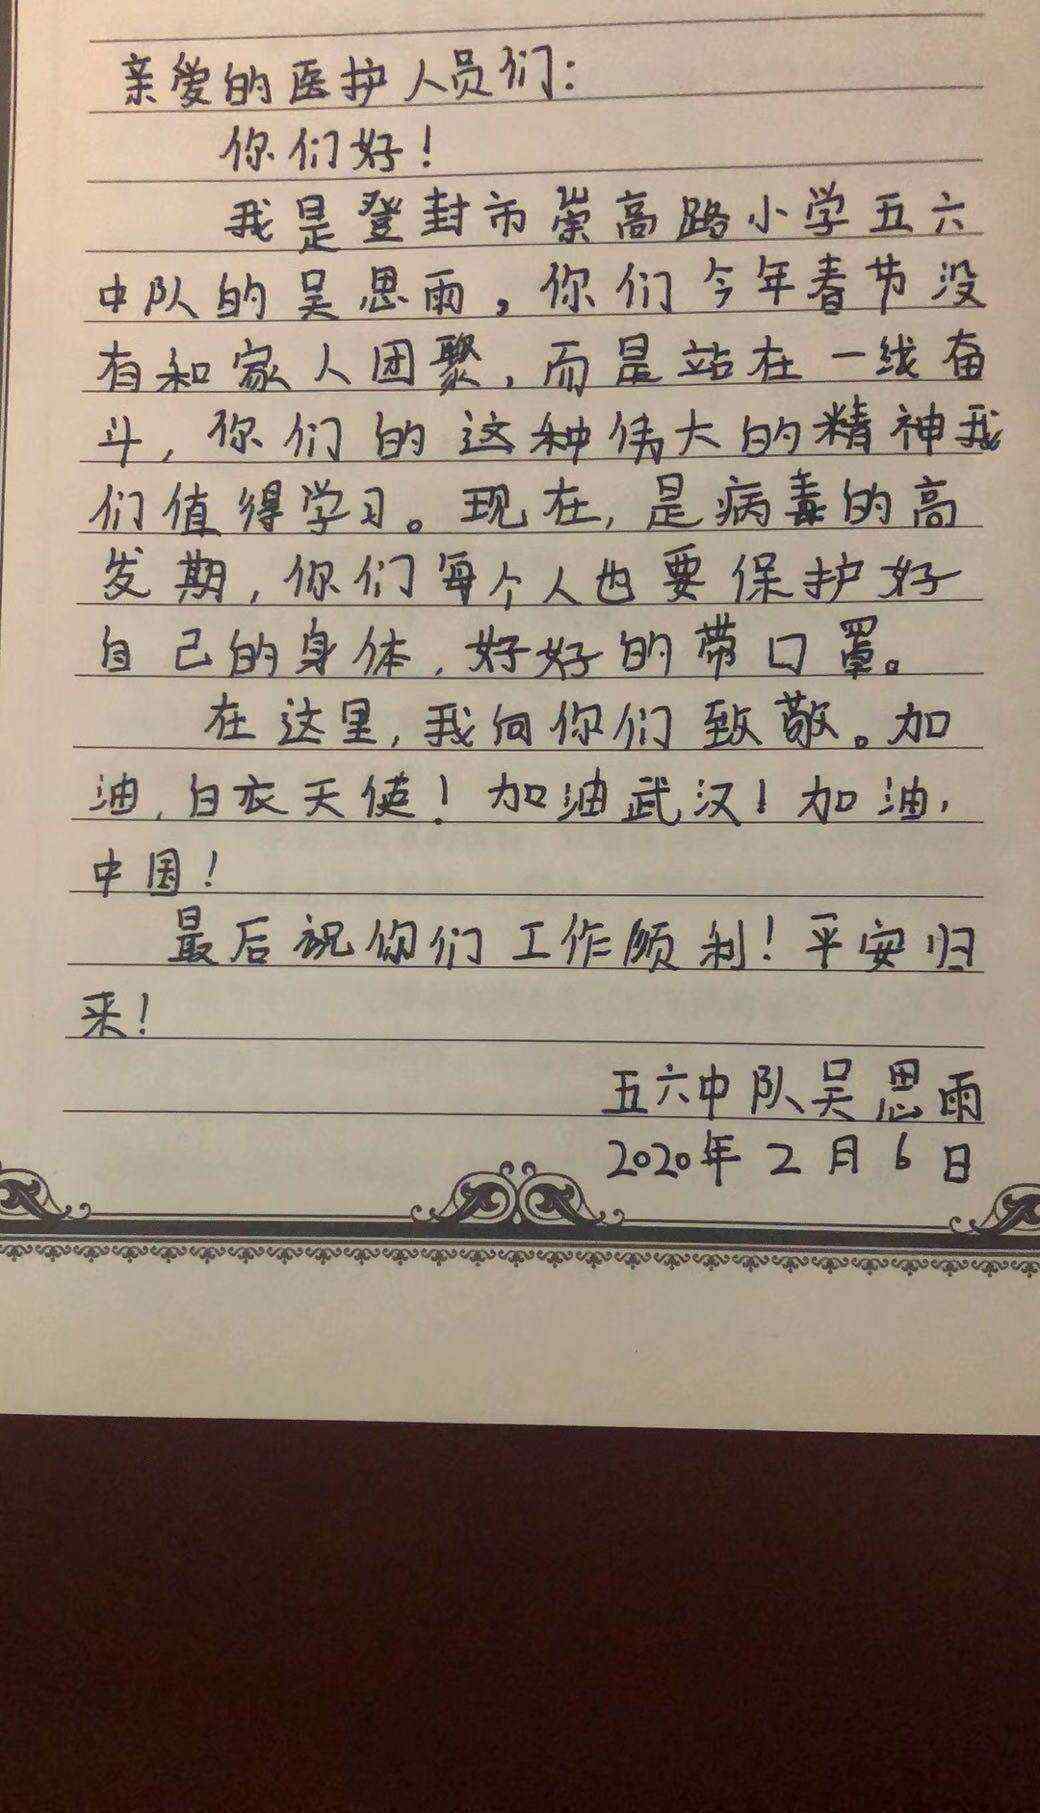 亲爱的医护人员们：
你们好！
我是登封市崇高路小学五六
中队的吴思雨，你们今年春节没
有和家人团聚，而是站在一线奋
斗，你们的这种伟大的精神我
们值得学习。现在，是病毒的高
发期，你们每个人也要保护好
自己的身体，好好的带口罩。
在这里，我向你们致敬。加
油，白衣天使！加油武汉！加油，
中国！
最后祝你们工作顺利！平安归
来！
五六中队吴思雨
2020年2月6日